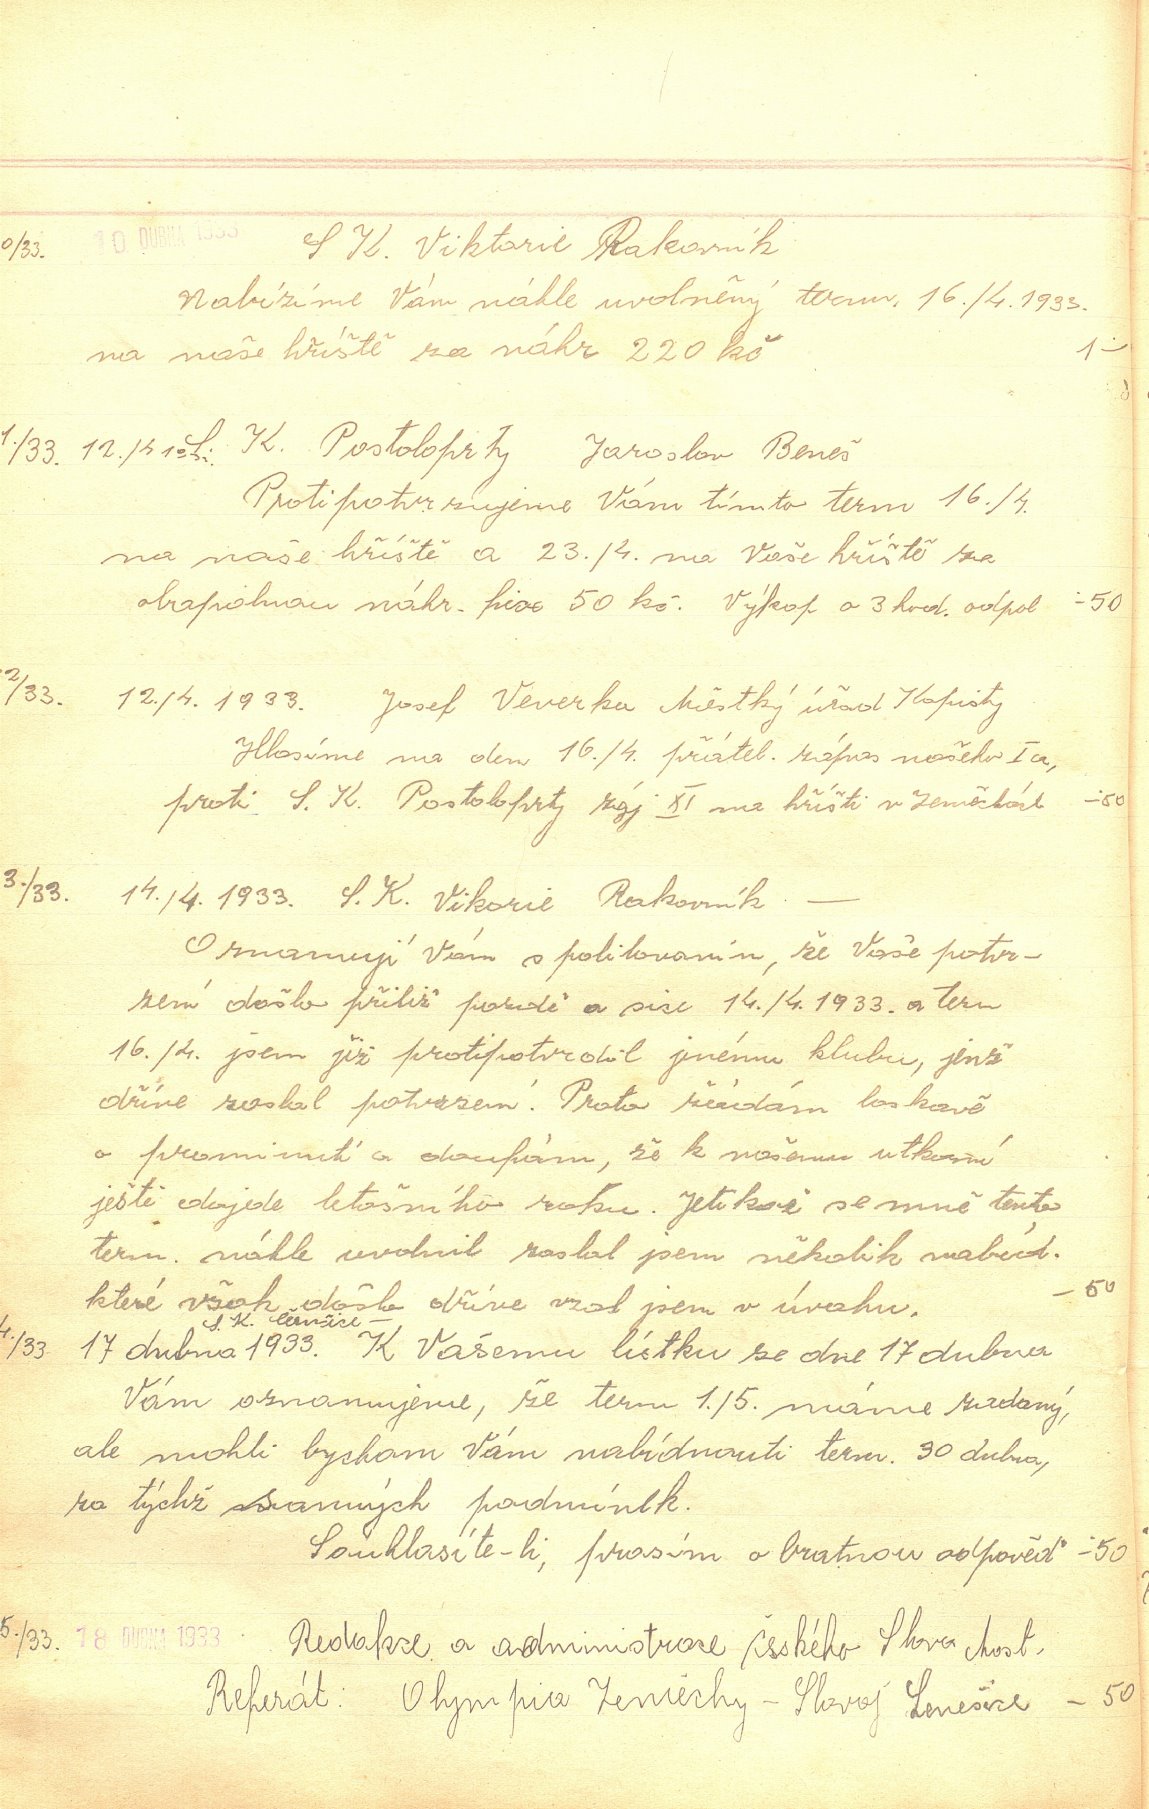 0/33. 10 DUBNA 1933 S K. Viktorie Rakovník
Nabízíme Vám náhle uvolněný term. 16./4. 1933.
na naše hřiště za náhr 220 kč 1-
1./33. 12./4 S. K. Postoloprty Jaroslav Beneš
Protipotvrzujeme Vám tímto term 16./4.
na naše hřiště a 23./4. na Vaše hřiště za
obapolnou náhr. 50 kč. Výkop o 3 hod. odpol -50
2/33. 12./4. 1933. Josef Veverka Městký úřad Kopisty
Hlasíme na den 16./4. přátel. zápas našeho I a,
proti S. K. Postoloprty XI na hřišti v Zeměchách -50
3./33. 14./4. 1933. S. K. Vikorie Rakovník —
Oznamuji Vám s politovaním, že Vaše potvr-
zení došlo přiliž pozdě a sice 14./4. 1933. a term
16./4. jsem již protipotvrdil jinému klubu, jenž
dříve zaslal potvrzení. Proto žádám laskavě
o prominutí a doufám, že k našemu utkaní
ještě dojde letošního roku. Jelikož se mně tento
term. náhle uvolnil zaslal jsem několik nabíd.
které však došlo dříve vzal jsem v úvahu. -50
S. K.
4./33 17 dubna 1933. K Vašemu lístku ze dne 17 dubna
Vám oznamujeme, že term 1./5. máme zadaný,
ale mohli bychom Vám nabídnouti term. 30 dubna,
za týchž podmínek.
Souhlasíte-li, prosím o bratnou odpověď -50
5./33. 18 DUBNA 1933 Redakce a administrace českého Slova Most.
Referát: Olympia Zeměchy - Slavoj Lenešice - 50